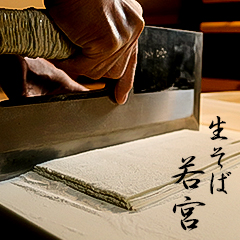 生そば
若宮